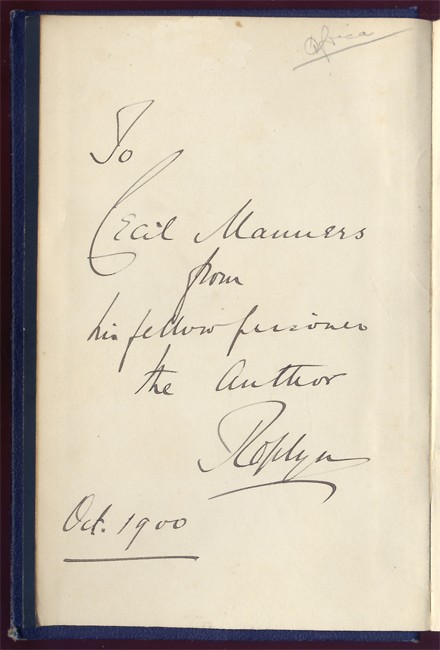 Africa
To
Cecil Manners
from
his fellow prisoner
the Author
Rosslyn
Oct. 1900